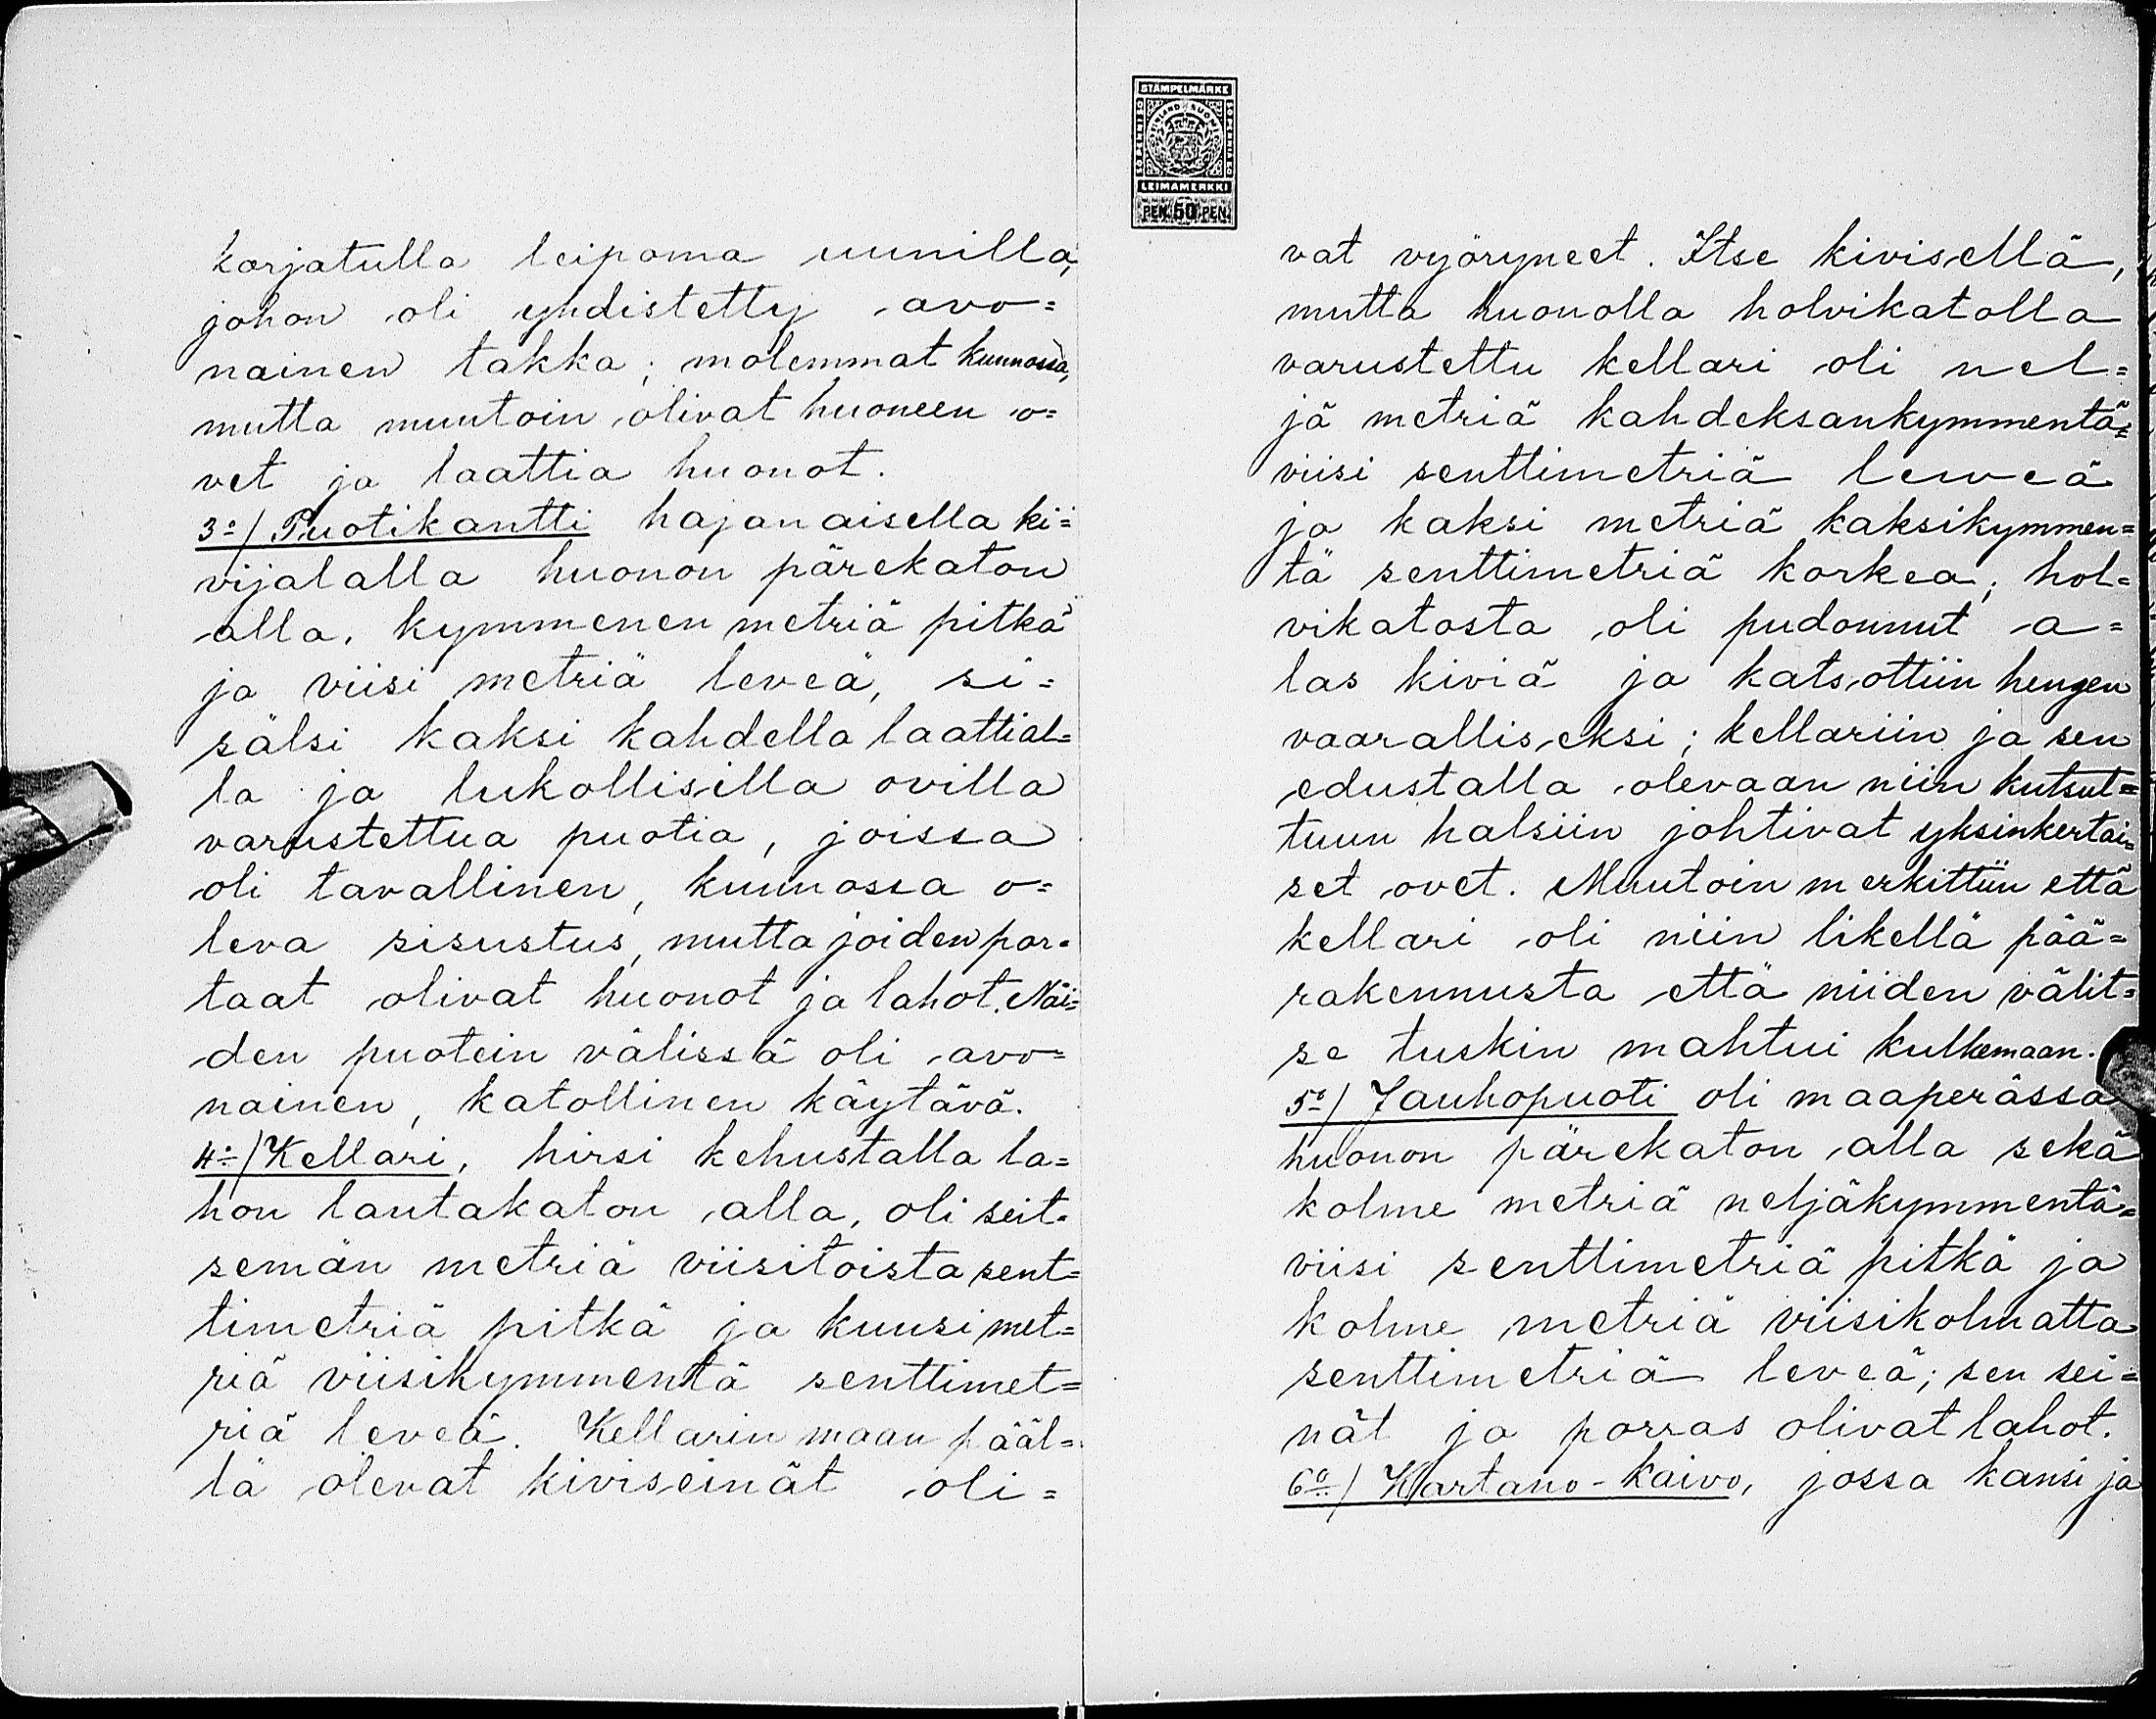 korjatulla leipoma uunilla,
johon oli yhdistetty avo=
nainen takka; molemmat kunnossa,
mutta muutoin olivat huoneen o=
vet ja laattia huonot.
3:o/ Puotikantti hajanaisella ki=
vijalalla huonon pärekaton
alla, kymmenen metriä pitkä
ja viisi metriä leveä, si=
sälsi kaksi kahdella laattial=
la ja lukollisilla ovilla
varustettua puotia, joissa
oli tavallinen, kunnossa o=
leva sisustus, mutta joiden por=
taat olivat huonot ja lahot. Näi=
den puotein välissä oli avo=
nainen, katollinen käytävä.
4:o/ Kellari, hirsi kehustalla la=
hon lautakaton alla, oli seit=
semän metriä viisitoista sent=
timetriä pitkä ja kuusi met=
riä viisikymmentä senttimet=
riä leveä. Kellarin maan pääl=
lä olevat kiviseinät oli=
STÄMPELMÄRKE
FINLAND SUOMI
50 PENNI 50
50 PENNIÄ 50
LEIMAMERKKI
PEN. 50 PEN.
vat vyöryneet. Itse kivisellä,
mutta huonolla holvikatolla
varustettu kellari oli nel=
jä metriä kahdeksankymmentä=
viisi senttimetriä leveä
ja kaksi metriä kaksikymmen=
tä senttimetriä korkea; hol=
vikatosta oli pudonnut a=
las kiviä ja katsottiin hengen
vaaralliseksi; kellariin ja sen
edustalla olevaan niin kutsut=
tuun halsiin johtivat yksinkertai=
set ovet. Muutoin merkittiin että
kellari oli niin likellä pää=
rakennusta että niiden välit=
se tuskin mahtui kulkemaan.
5:o/ Jauhopuoti oli maaperässä
huonon pärekaton alla sekä
kolme metriä neljäkymmentä=
viisi senttimetriä pitkä ja
kolme metriä viisikolmatta
senttimetriä leveä; sen sei=
nät ja porras olivat lahot.
6:o/ Kartano-kaivo, jossa kansi ja